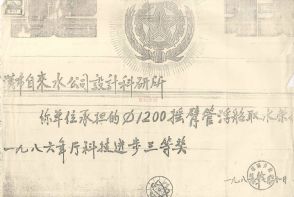 自来水公司設計科研所
你单位承担的Ø1200摇臂管浮船取水
一九八六年厅科技進步三等奖
一九八